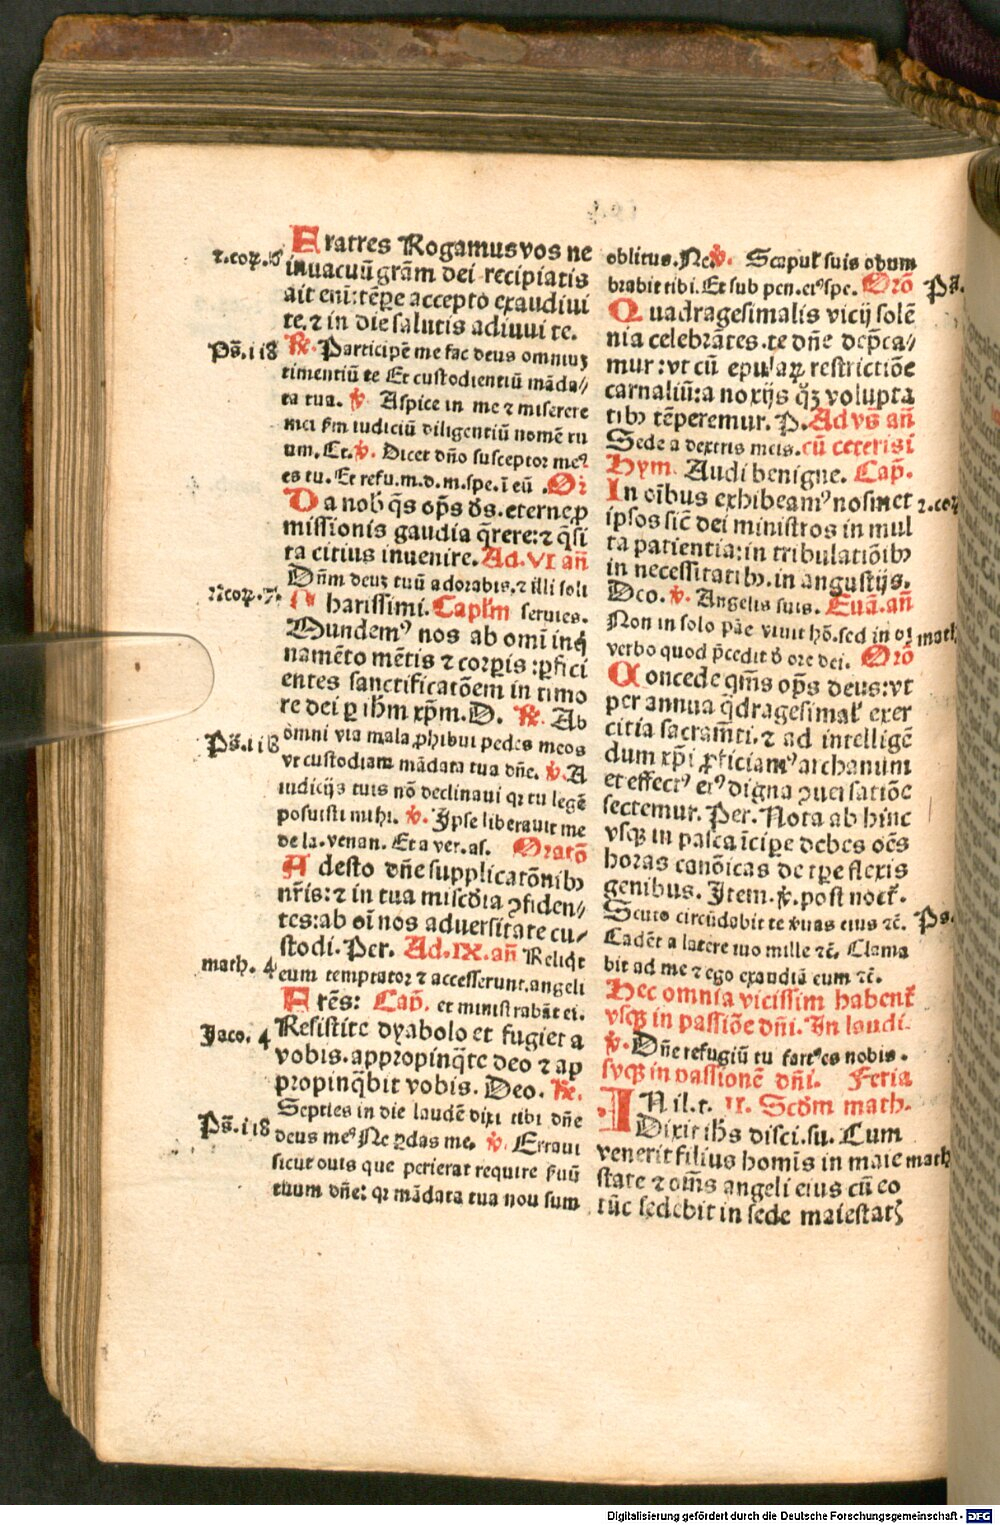 Fratres Rogamus vos ne
2.coꝝ.6
in vacuū grām dei recipiatis
ait eni:tēpe accepto exaudiui
te.⁊ in die salutis adiuui te.
Ps̄.118
℟. Participē me fac deus omniuꝫ
timentiū te Et custodientiū māda⸗
ta tua. ℣. Aspice in me ⁊ miserere
mei ẜm iudiciū diligentiū nomē tu
um. Et.℣. Dicet dño susceptor meꝰ
es tu. Et refu.m.d.m.spe.ī eū .Or̄
Da nob̄ q̄s op̄s ds̄.eterne ꝓ
missionis gaudia q̄rere:⁊ q̄si
ta citius inuenire. Ad.VI añ
Dñm deuꝫ tuū adorabis.⁊ illi soli
coꝝ.7.
harissimi. Capl̄m seruies.
Mundemꝰ nos ab omī inq̄
namēto mētis ⁊ corꝑis :ꝑfici
entes sanctificatōem in timo
re dei ꝑ ih̄m xp̄m.D. ℟. Ab
omni via mala ꝓhibui pedes meos
Ps̄.118
vt custodiam mādata tua dñe. ℣. A
iudicijs tuis nō declinaui qꝛ tu legē
posuisti mihi. ℣. Ipse liberauit me
de la.venan. Et a ver.as. Oratō
Adesto dñe supplicatōnibꝰ
nr̄is:⁊ in tua misc̄dia ꝯfiden⸗
tes:ab oī nos aduersitate cu⸗
stodi.Per. Ad.IX.añ Reliq̄t
math. 4
eum temptator ⁊ accesserunt.angeli
Frēs: Cap̄. et ministrabāt ei.
Jaco. 4
Resistite dyabolo et fugiet a
vobis.appropinq̄te deo ⁊ ap
propinq̄bit vobis. Deo. ℟.
Septies in die laudē dixi tibi dñe
Ps̄.118
deus meꝰ Ne ꝑdas me. ℣. Erraui
sicut ouis que perierat require ẜuū
tuum dñe: qꝛ mādata tua non sum
oblitus.Ne ℣. Scapul̄ suis obum
brabit tibi. Et sub pen.eiꝰ spe. Orō
Ps̄.
Quadragesimalis vicij solē
nia celebrātes.te dñe dep̄ca⸗
mur :vt cū epulaꝝ restrictiōe
carnaliū:a noxijs qꝫ volupta
tibꝰ tēperemur. P. Ad vs̄ añ
Sede a dextris meis. cū ceteris ī
Hym. Audi benigne. Cap̄.
In oībus exhibeamꝰ nosmet
2.coꝝ
ipsos sic̄ dei ministros in mul
ta patientia:in tribulatiōibꝰ
in necessitatibꝰ.in angustijs.
Deo. ℣. Angelis suis. Euā.añ
Non in solo pāe viuit hō.sed in oī
math
verbo quod p̄cedit d̄ ore dei. Orō
Concede qm̄s op̄s deus:vt
per annua q̄dragesimal̄ exer
citia sacram̄ti.⁊ ad intelligē
dum xp̄i ꝓficiamꝰ archanum
et effectꝰ eiꝰ digna ꝯuersatiōe
sectemur. Per. Nota ab hinc
vsqꝫ in pasca īcipe debes oēs
horas canōicas de tꝑe flexis
genibus. Item.℣.post noct̄.
Scuto circūdabit te ẜuas eius ⁊c̄.
Ps.
Cadēt a latere tuo mille ⁊c̄. Clama
bit ad me ⁊ ego exaudiā eum ⁊c̄.
Hec omnia vicissim habent̄
vsqꝫ in passiōe dñi. In laudi.
℣. Dñe refugiū tu factꝰ es nobis.
svqꝫ in passionē dñi. Feria
IN il.t. II. Scd̄m math.
Dixit ih̄s disci.su. Cum
venerit filius homīs in maie
math
state ⁊ om̄s angeli eius cū eo
tūc sedebit in sede maiestatꝭ
Digitalisierung gefördert durch die Deutsche Forschungsgemeinschaft - DFG